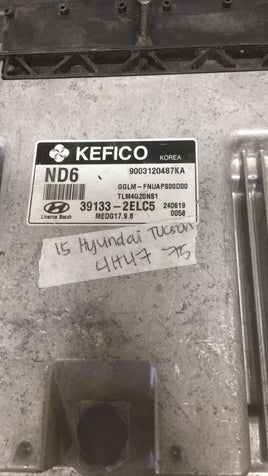 KEFICO KOREA
ND6 9003120487KA
GGLM-FNUAPS00D00
TLM4G20NS1
39133-2ELC5 240619
Licence Bosch MEDG17.9.8 0058
15 Hyundai Tucson
4H47 75